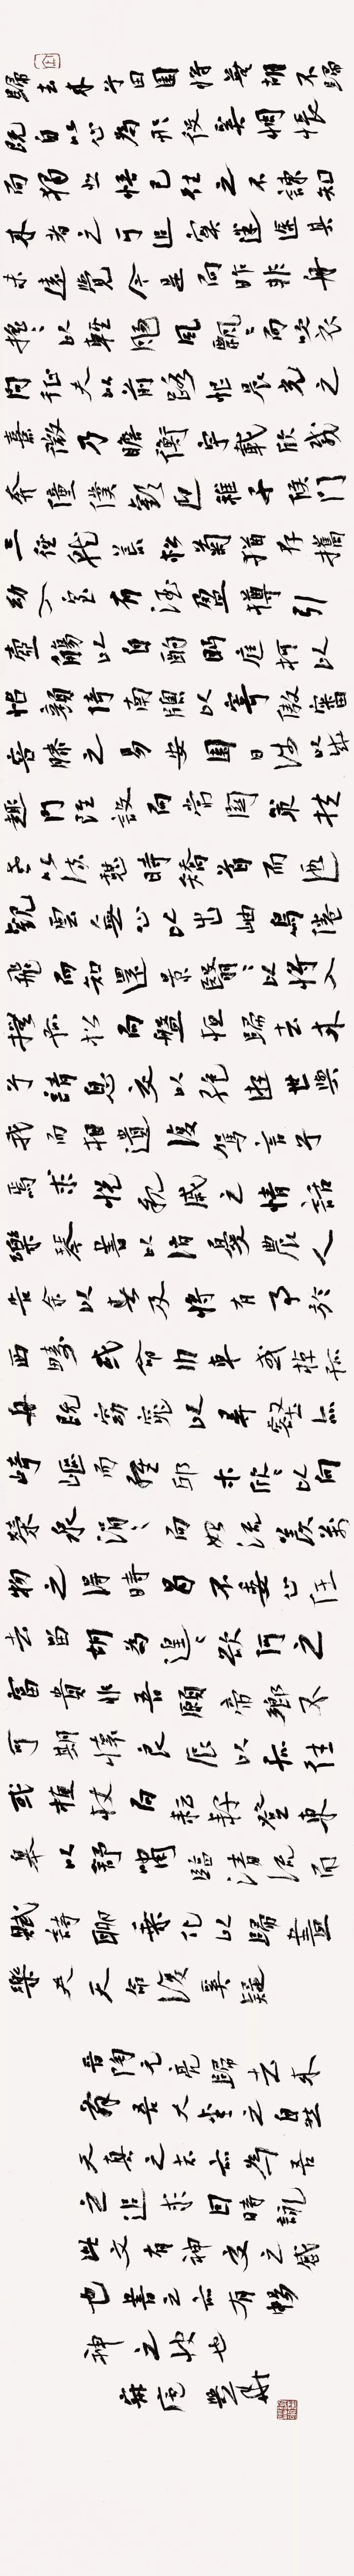 歸去来兮田園将蕪胡不歸
既自以心為形役奚惆悵
而獨悲悟已往之不諫知
来者之可追寔迷途其
未遠覺今是而昨非舟
摇々以輕颺風飄々而吹衣
問征夫以前路恨晨光之
熹微乃瞻衡宇載欣載
奔僮僕歡迎稚子候門
三徑就荒松菊猶存攜
幼入室有酒盈樽引
壺觴以自酌眄庭柯以
怡顏倚南牕以寄傲審
容膝之易安園日涉以成
趣門雖設而常關策扶
老以流憩時矯首而遐
觀雲無心以出岫鳥倦
飛而知還景翳々以将入
撫孤松而盤桓歸去来
兮請息交以絕游世與
我而相遺復駕言兮
焉求悅親戚之情話
樂琴書以消憂農人
告余以春及将有事於
西疇或命巾車或棹孤
舟既窈窕以尋壑亦
崎嶇而經邱木欣々以向
榮泉涓々而始流羨萬
物之得時曷不委心任
去留胡為遑々欲何之
富貴非吾願帝鄉不
可期懷良辰以孤往
或植杖而耘耔登東
皋以舒嘯臨清流而
賦詩聊乘化以歸盡
樂夫天命復奚疑
晉陶元亮歸去来
辞吾人生之自然
天真之志亦為吾
之追求日時詠
此文有神交之感
也書之亦有暢
神之快也